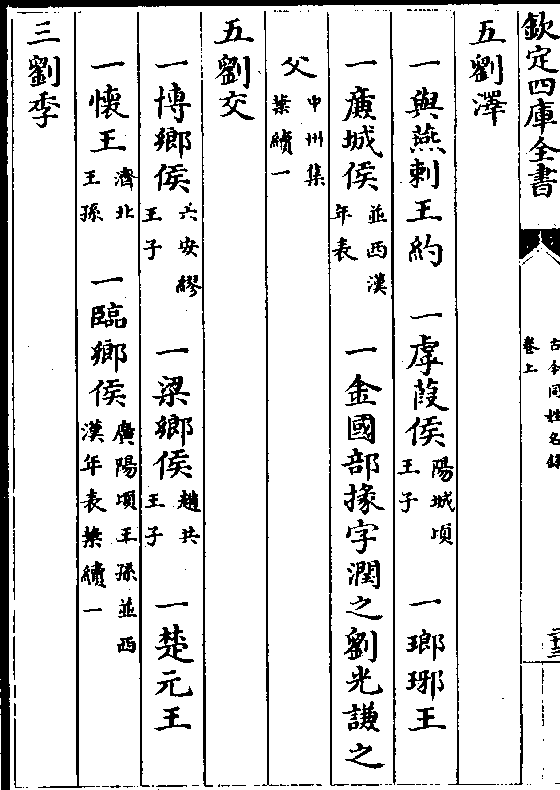 欽定四庫全書
古今同姓名錄
卷上
五劉澤
一與燕剌王約 一虖葭侯陽城頃王子 一瑯琊王
一廣城侯並西漢年表 一金國部掾字潤之劉光謙之
父中州集葉續一
五劉交
一博鄉侯六安繆王子 一梁鄉侯趙共王子 一楚元王
一懷王濟北王孫 一臨鄉侯廣陽頃王孫並西漢年表葉續一
三劉季